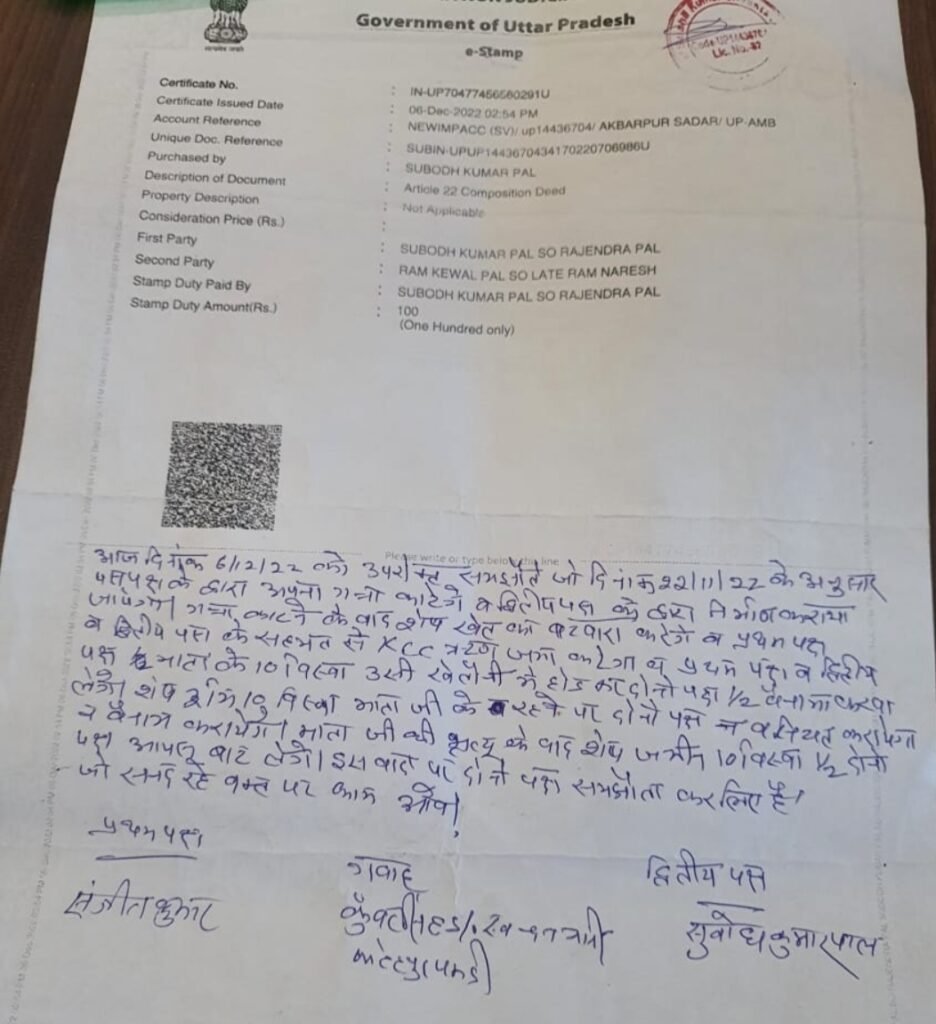 सत्यमेव जयते
Government of Uttar Pradesh
e-Stamp
Lic. No.-82
Certificate No. : IN-UP70477456580291U
Certificate Issued Date : 06-Dec-2022 02:54 PM
Account Reference : NEWIMPACC (SV)/ up14436704/ AKBARPUR SADAR/ UP-AMB
Unique Doc. Reference : SUBIN-UPUP1443670434170220706986U
Purchased by : SUBODH KUMAR PAL
Description of Document : Article 22 Composition Deed
Property Description : Not Applicable
Consideration Price (Rs.) :
First Party : SUBODH KUMAR PAL SO RAJENDRA PAL
Second Party : RAM KEWAL PAL SO LATE RAM NARESH
Stamp Duty Paid By : SUBODH KUMAR PAL SO RAJENDRA PAL
Stamp Duty Amount(Rs.) : 100
(One Hundred only)
Please write or type below this line
आज दिनांक 6/12/22 को उपरोक्त समझौते जो दिनांक 22/11/22 के अनुसार
के द्वारा अपना गन्ना काटेंगे व द्वितीय पक्ष के द्वारा निर्माण कराया
जायेगा। गन्ना काटने के बाद शेष खेत का बटवारा करेंगे व प्रथम पक्ष
व द्वितीय पक्ष के सहमत से KCC ऋण जमा करेगा व प्रथम पक्ष व द्वितीय
पक्ष माता के 10 विस्वा उसी खेतौनी में छोड़ कर दोनो पक्ष 1/2 बैनामा करवा
लेंगे। शेष भूमि 10 विस्वा माता जी के रहने पर दोनो पक्ष न वसियत करायेगा
न बैनामा करायेगा। माता जी की मृत्यु के बाद शेष जमीन 10 विस्वा 1/2 दोनो
पक्ष आपस में बाट लेंगे। इस बात पर दोनो पक्ष समझौता कर लिए है।
जो सनद रहे वक्त पर काम आवे।
प्रथम पक्ष
गवाह
द्वितीय पक्ष
संजीत कुमार
सुबोध कुमार पाल